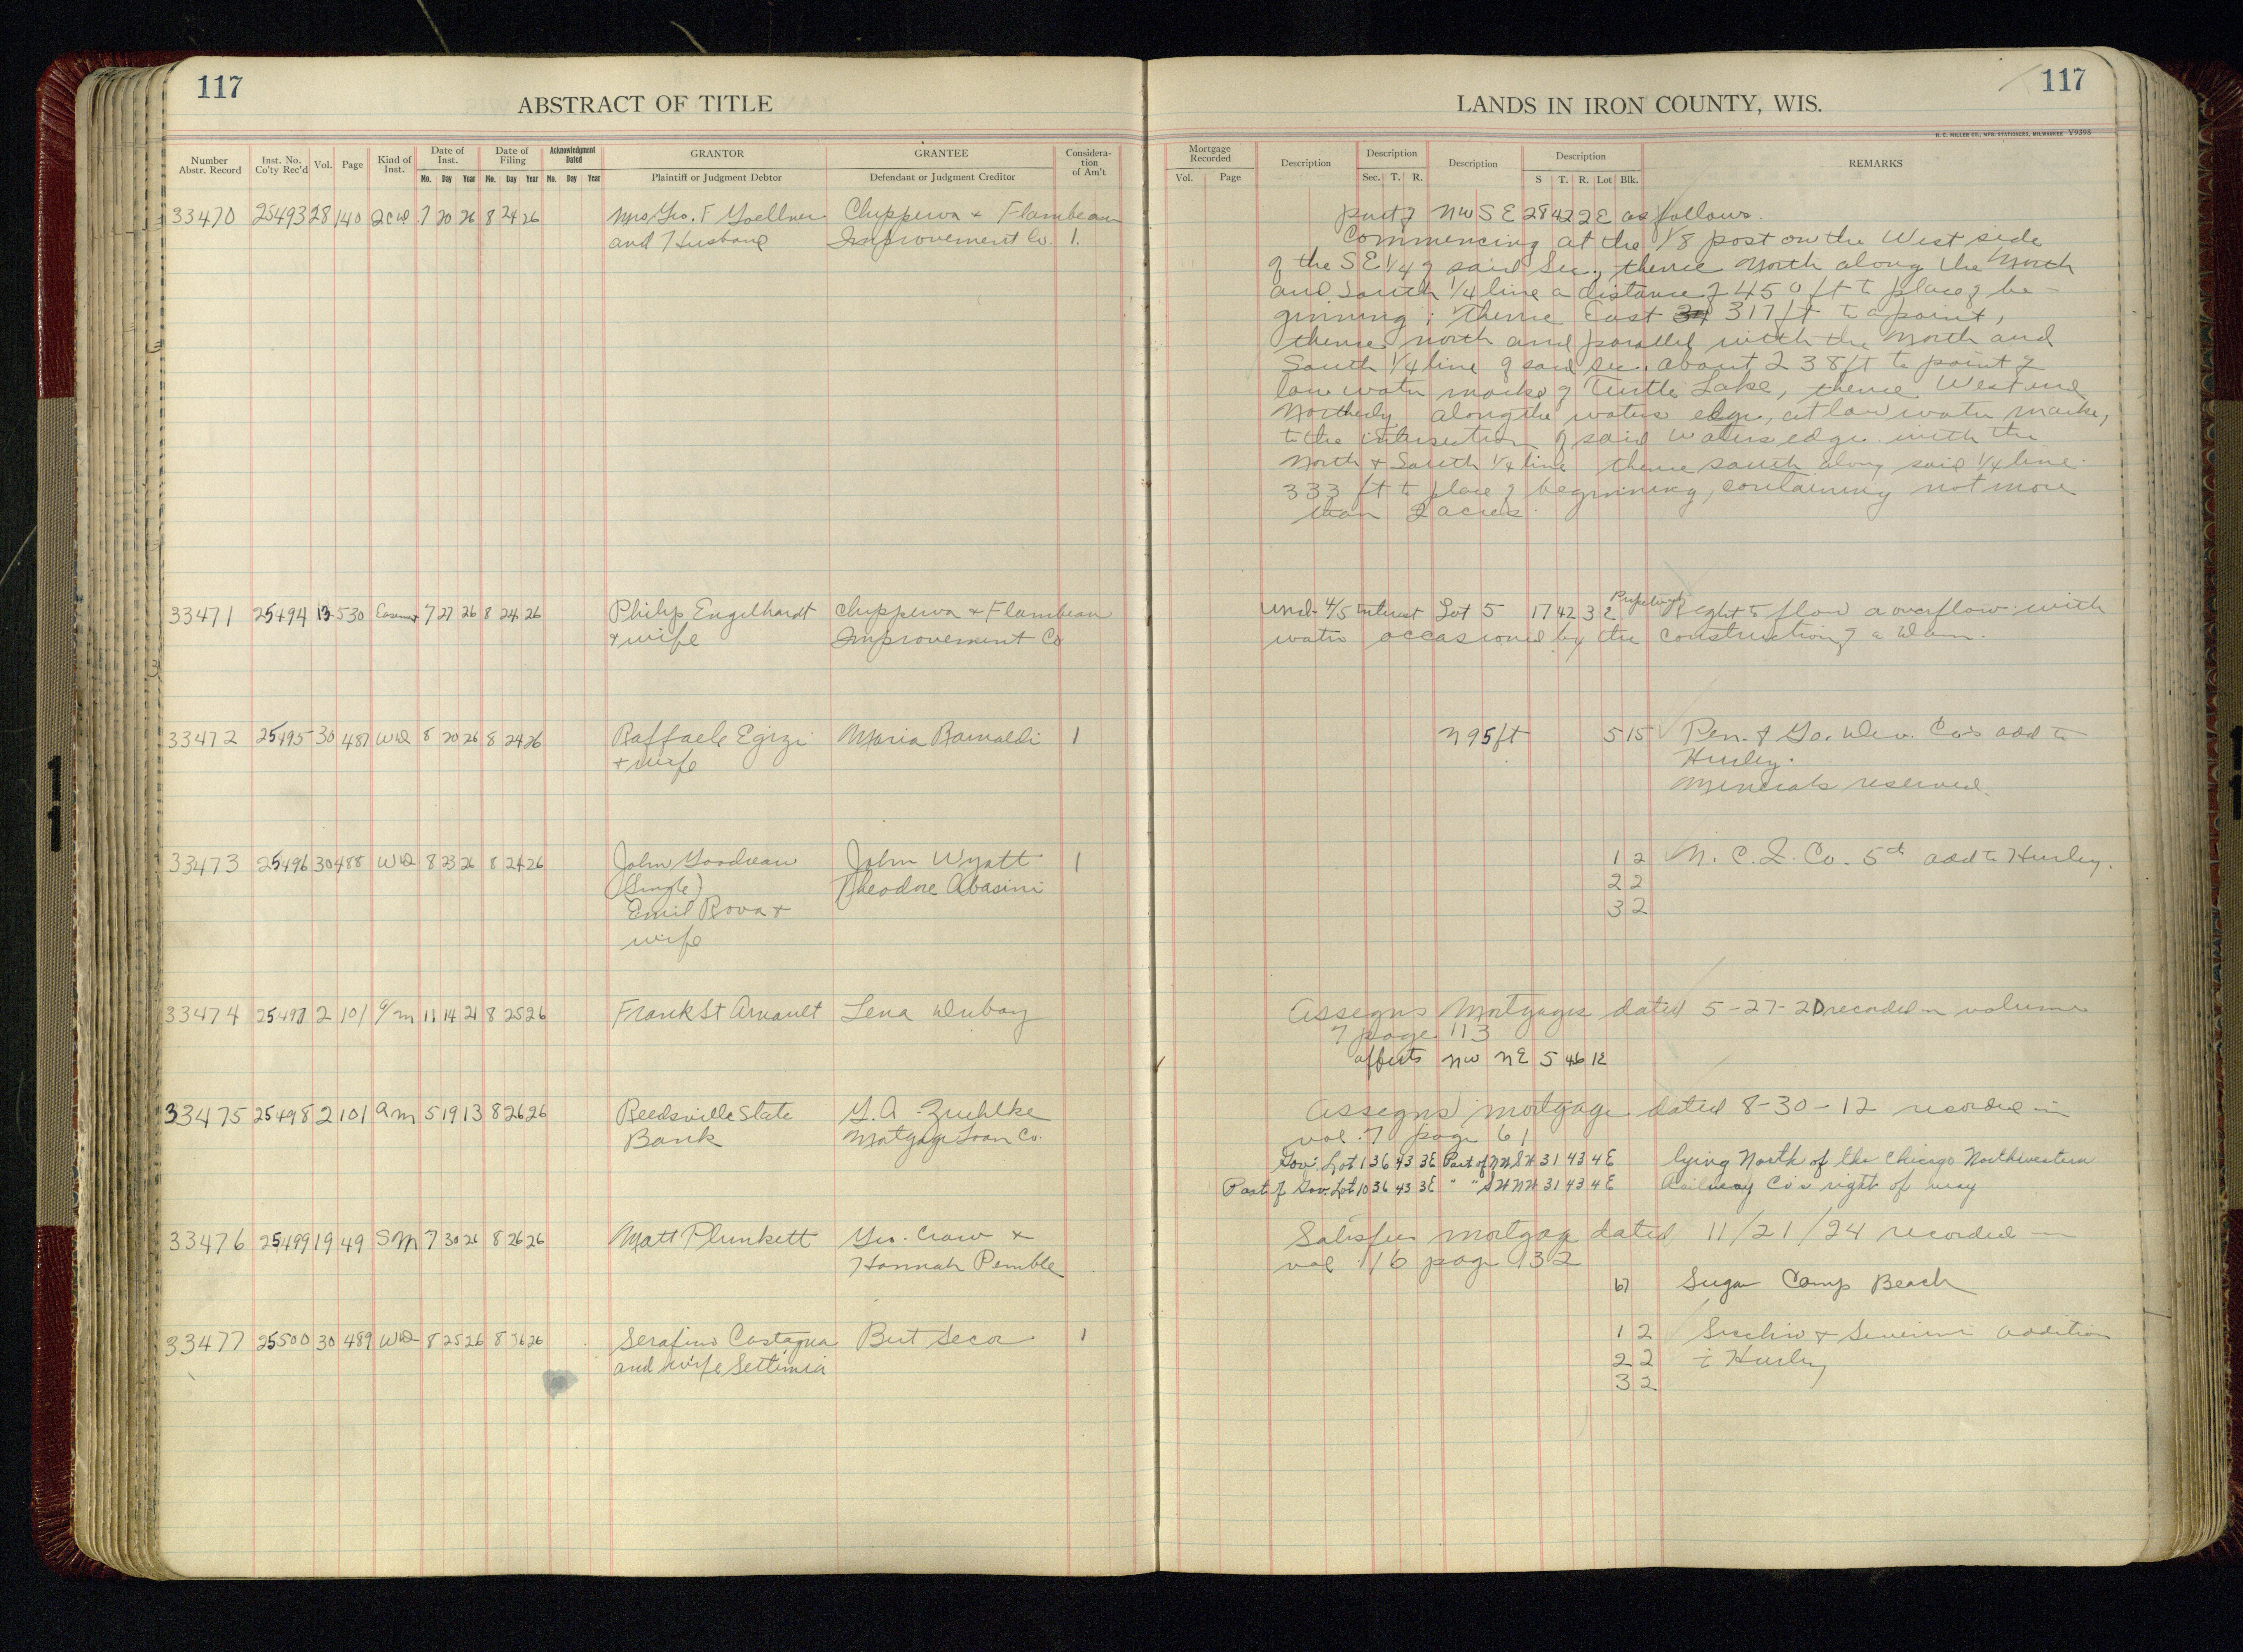 117
ABSTRACT OF TITLE
Number Abstr. Record Inst. No. Co'ty Rec'd Vol. Page Kind of Inst. Date of Inst. Mo. Day Year Date of Filing Mo. Day Year Acknowledgment Dated Mo. Day Year GRANTOR Plaintiff or Judgment Debtor GRANTEE Defendant or Judgment Creditor Considera-tion of Am't
33470 25493 28 140 QCD 7 20 26 8 24 26 Mrs. Geo. F Goellner Chippewa & Flambeau
and Husband Improvement Co. 1.
33471 25494 13 530 Easement 7 27 26 8 24 26 Philip Engelhardt Chippewa & Flambeau
& wife Improvement Co
33472 25495 30 487 WD 8 20 26 8 24 26 Raffaele Egizi Maria Rainaldi 1
+ wife
33473 25496 30 488 WD 8 23 26 8 24 26 John Goodreau John Wyatt 1
(Single) Theodore Abasini
Emil Rova +
wife
33474 25497 2 101 a/m 11 14 21 8 25 26 Frank St Arnault Lena Dubay
33475 25498 2 101 am 5 19 13 8 26 26 Reedsville State G. A. Zuehlke
Bank Mortgage Loan Co.
33476 25499 19 49 SM 7 30 26 8 26 26 Matt Plunkett Geo. Craw &
Hannah Pemble
33477 25500 30 489 WD 8 25 26 8 26 26 Serafino Castagna Bert Secor 1
and wife Settimia
117
LANDS IN IRON COUNTY, WIS.
H. C. MILLER CO., MFG. STATIONERS, MILWAUKEE V9398
Mortgage Recorded Vol. Page Description Description Sec. T. R. Description Description S T. R. Lot Blk. REMARKS
part of NW SE 28 42 2E as follows.
Commencing at the 1/8 post on the West side
of the SE 1/4 of said Sec., thence North along the North
and South 1/4 line a distance of 450 ft to place of be-
ginning; thence East 317 ft to a point,
thence north and parallel with the North and
South 1/4 line of said sec. about 238 ft to point of
low water mark of Turtle Lake, thence West and
Northerly along the waters edge, at low water mark,
to the intersection of said waters edge with the
North + South 1/4 line thence south along said 1/4 line
333 ft to place of beginning, containing not more
than 2 acres.
und 4/5 interest Lot 5 17 42 3 E Perpetual Right to flow a overflow with
water occasioned by the construction of a Dam.
N 95 ft 5 15 Pen. & Go. Dev. Co's add to
Hurley.
Minerals reserved.
1 2 N. C. I. Co. 5th add to Hurley.
2 2
3 2
Assigns Mortgages dated 5-27-20 recorded in volume
7 page 113
affects NW NE 5 46 1E
Assigns mortgage dated 8-30-12 recorded in
vol. 7 page 61
Gov. Lot 1 36 43 3E Part of NW SW 31 43 4E lying North of the Chicago Northwestern
Part of Gov. Lot 10 36 43 3E " " SW NW 31 43 4E Railway Co's right of way
Satisfies mortgage dated 11/21/24 recorded in
vol 16 page 132
67 Sugar Camp Beach
1 2 Secchio & Severini addition
2 2 to Hurley
3 2